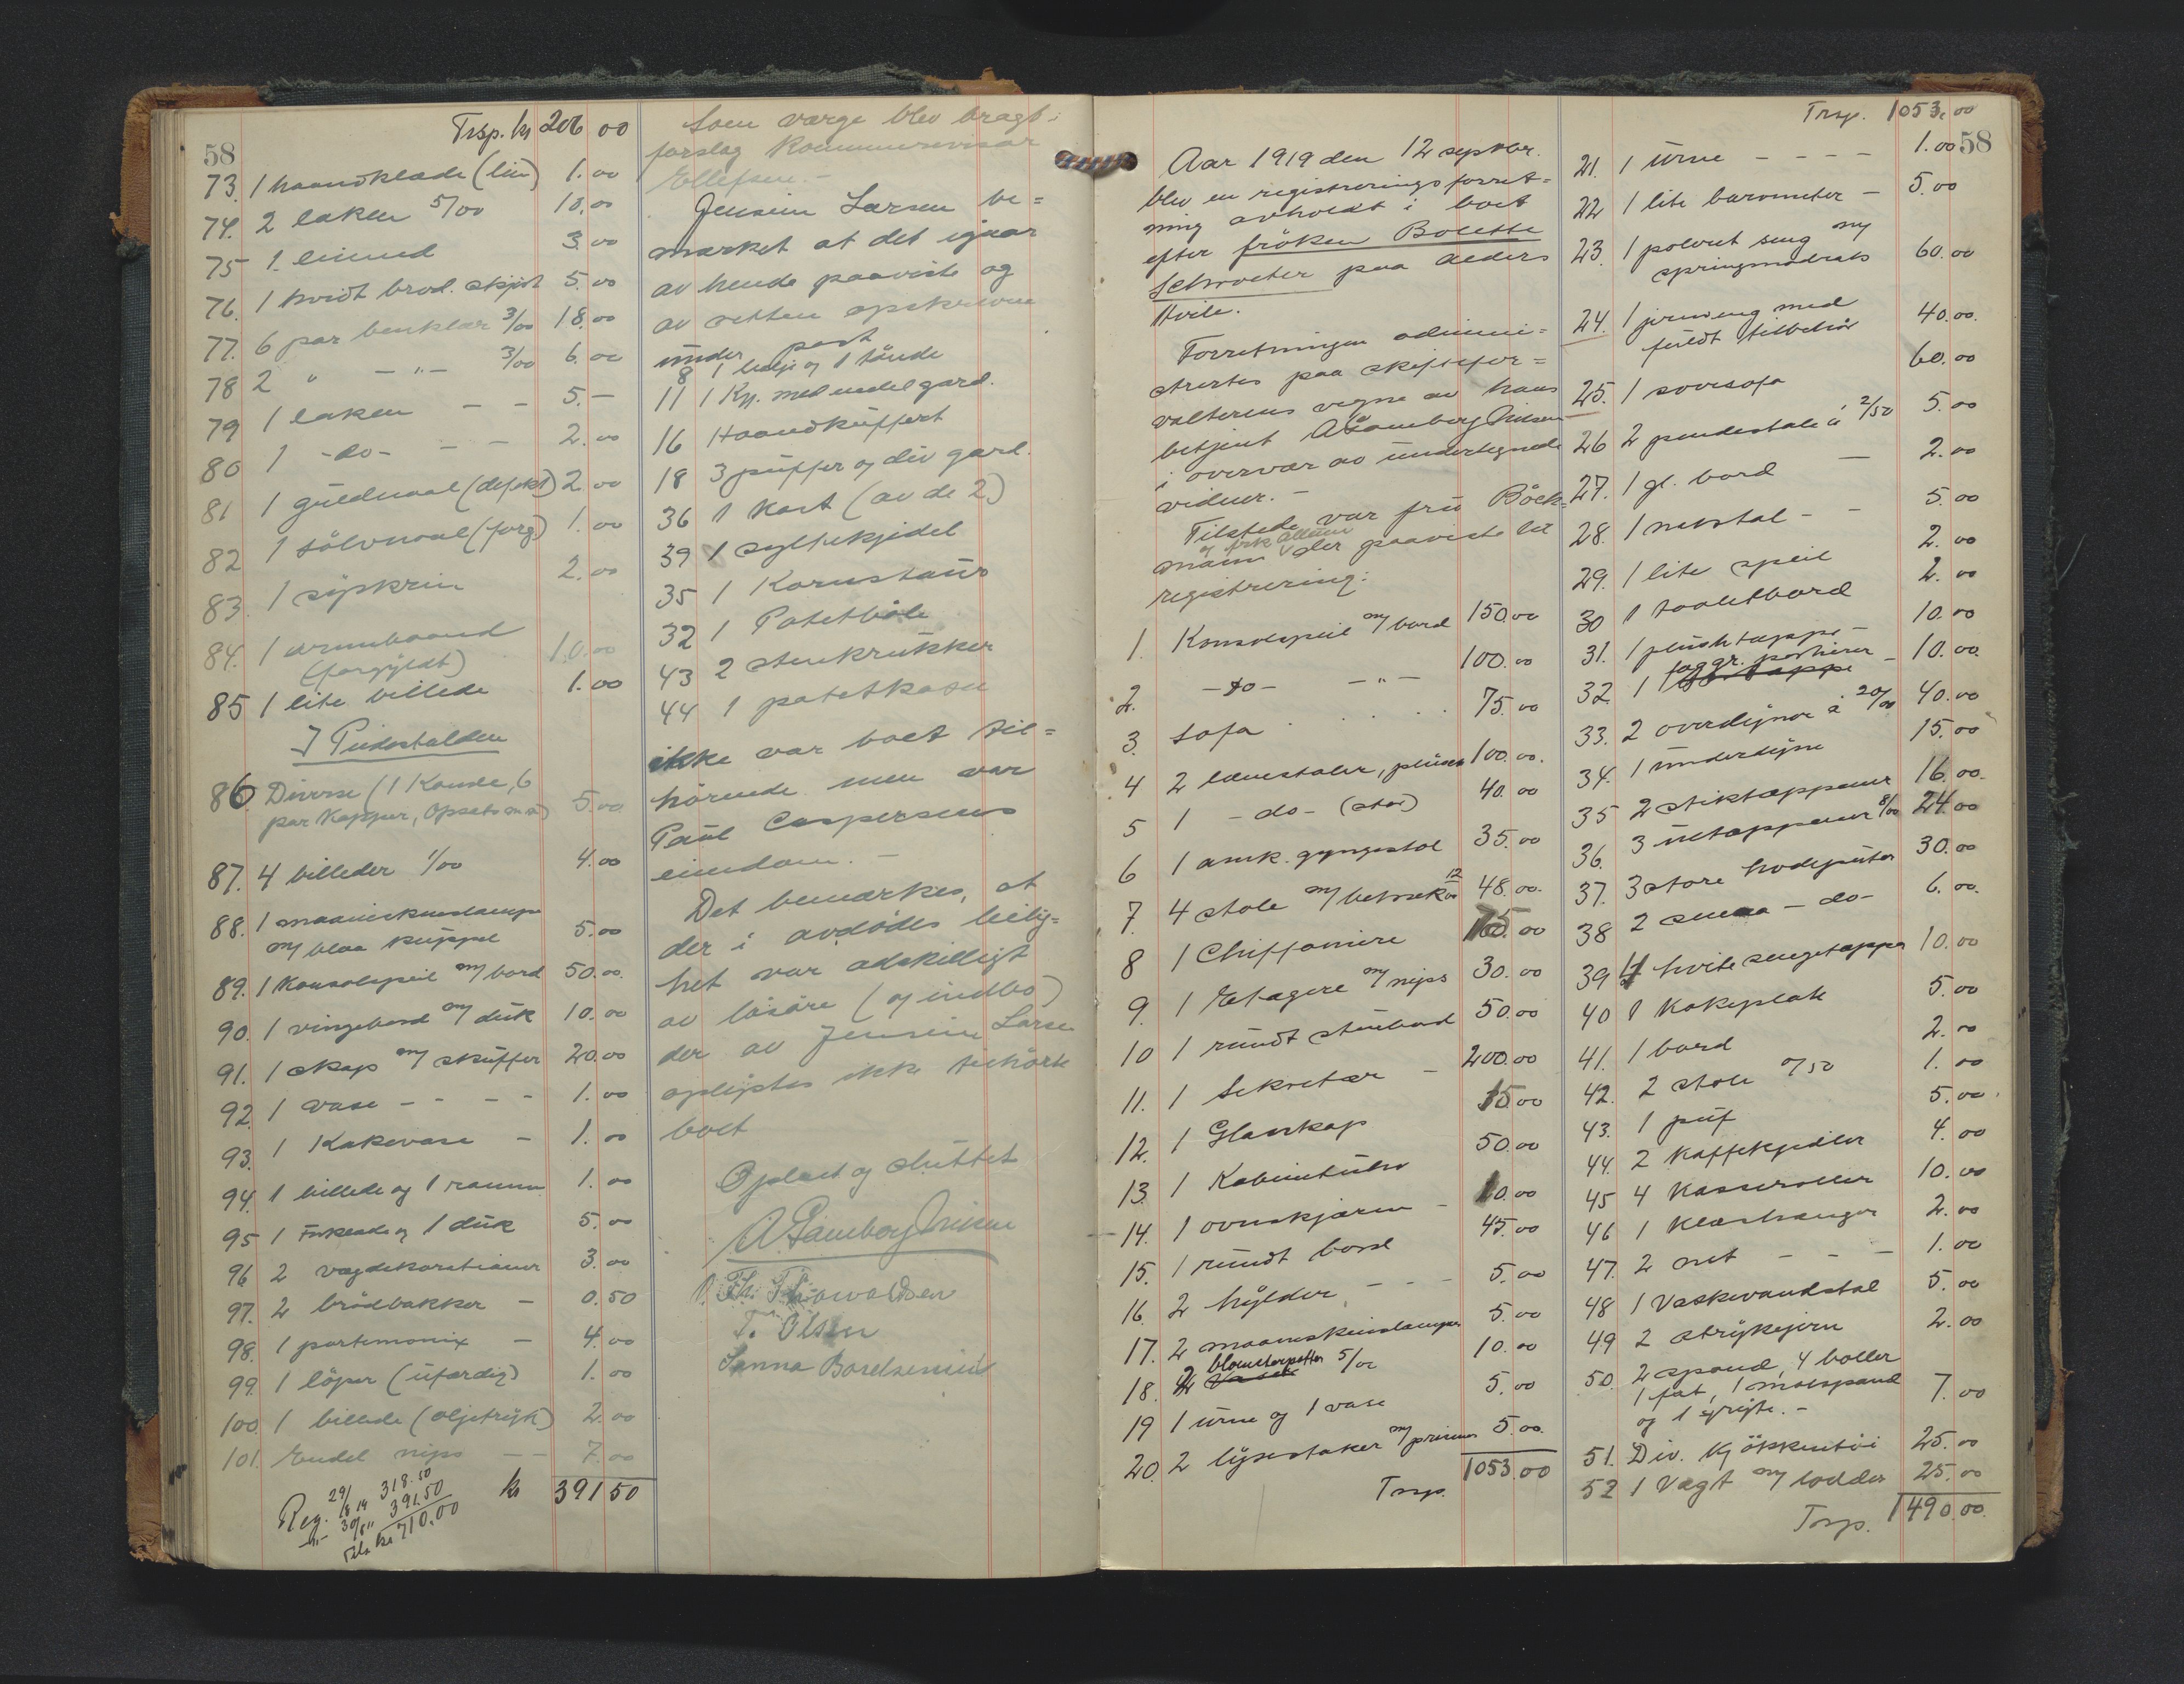 58
Trsp. kr 206 00
73. 1 haandklæde (lin) 1.00
74. 2 laken 5/00 10.00
75 1 linned 3.00
76. 1 hvidt brod. skjørt 5.00
77. 6 par benklær 3/00 18.00
78 2 " -"- 3/00 6.00
79 1 laken - - 5.-
80 1 -do- - - 2.00
81 1 guldnaal (defekt) 2.00
82 1 sölvnaal (forg) 1.00
83. 1 syskrin 2.00
84. 1 armbaand
(forgyldt) 10.00
85 1 lite billede 1.00
I Pidestalden
86 Diverse (1 Kande, 6
par Kopper, Opsats m.m) 5.00
87. 4 billeder 1/00 4.00
88. 1 maaneskinslampe
m/ blaa kuppel 5.00
89. 1 Konsolspeil m/ bord 50.00
90. 1 vingebord m/ duk 10.00
91. 1 skap m/ skuffer 20.00
92. 1 vase - - - - 1.00
93. 1 Kakevase - 1.00
94. 1 billede og 1 ramme 1.00
95 1 og 1 duk 5.00
96 2 vægdekorationer 3.00
97. 2 brödbakker - 0.50
98. 1 portemonix - 4.00
99. 1 löper (ufærdig) 1.00
100. 1 billede (oljetryk) 2.00
101. Endel nips - - 7.00
kr 391 50
Reg. 29/8 19 318.50
-"- 30/8 " 391.50
Tils. kr 710.00
Som værge blev bragt i
forslag Kommunerevisor
Ellefsen -
Jensine Larsen be=
merket at det igaar
av hende paaviste og
av retten opskrevne
under post
8 1 balje og 1 tönde
11 1 Kp. med endel gard.
16 Haandkuffert
18 3 puffer og div gard.
36 1 Kost (av de 2)
39 1 syltekjedel
35 1 Kornstaur
32 1 Potetbale
43 2 stenkrukker
44 1 potetkasse
ikke var boet til=
hörende men var
Paul Caspersens
eiendom. -
Det bemerkes, at
der i avdödes leilig=
het var adskilligt
av lösöre (og indbo)
der av Jensine Larsen
oplystes ikke tilhörte
boet
Oplæst og sluttet
A. Lamberg Nilsen
Th. Thorvaldsen
T. Olsen
Sanna Borelsenius
Aar 1919 den 12 septbr.
blev en registreringsforret=
ning avholdt i boet
efter fröken Bolette
Schrøeter paa Alders
Hvile.
Forretningen admini=
strertes paa skiftefor=
valterens vegne av hans
betjent A. Lamberg Nilsen
i overvær av undertegnede
vidner. -
Tilstede var fru Böck=
og frk Allum
mann der paaviste til
registrering:
1. Konsolspeil m/ bord 150.00
2. -do- -"- 100.00
3. Sofa . . . . 75.00
4 2 lænestoler, plüsch 100.00.
5 1 -do- (stor) 40.00
6 1 amk. gyngestol 35.00
7. 4 stole m/ betræk 12/00 48.00.
8 1 Chiffoniere 75.00
9. 1 Etagere m/ nips 30.00
10 1 rundt stuebord 50.00
11. 1 Sekretær - 200.00
12. 1 Glasskap 15.00
13. 1 Kabinetuhr 50.00
14. 1 ovnskjærm - 10.00
15. 1 rundt bord 45.00
16. 2 hylder - - - 5.00
17. 2 maaneskinslamper 5.00
18. 2 blomsterpotter 5/00 10.00
19 1 urne og 1 vase 5.00
20. 2 lysestaker m/ prismer 5.00.
Trsp. 1053.00
58
Trsp. 1053.00
21. 1 Urne - - - - 1.00
22 1 lite barometer - 5.00
23. 1 poleret seng m/
springmadras 60.00
24. 1 jernseng med
fuldt tilbehör 40.00.
25. 1 sovesofa 60.00
26 2 piedestale à 2/50 5.00
27. 1 gl. bord - 2.00
28. 1 natstol - - 5.00
29. 1 lite speil 2.00
30 1 toaletbord 2.00
31. 1 plüshtæppe - 10.00
32. 1 fag gr. portierer - 10.00.
33. 2 overdyner à 20/00 40.00
34. 1 underdyne 15.00
35 2 stiktæppener 16.00
36. 3 uldtæppener 8/00 24.00
37. 3 store hodeputer 30.00
38 2 smaa -do- 6.00.
39 4 hvite sengetæpper 10.00
40 1 Kokeplate 5.00
41. 1 bord 2.00
42. 2 stole 0/50 1.00
43. 1 puf 5.00
44. 2 Kaffekjedler 4.00
45 4 Kasseroller 10.00
46 1 Klæshænger 2.00
47. 2 net - - - 1.00
48 1 Vaskevandstol 5.00
49 2 strykejern 2.00
50. 2 spand, 4 boller
1 fat, 1 molspand
og 1 gryte. - 7.00
51. Div. Kjökkentöi 25.00
52 1 Vægt m/ lodder 25.00
Trsp. 1490.00.